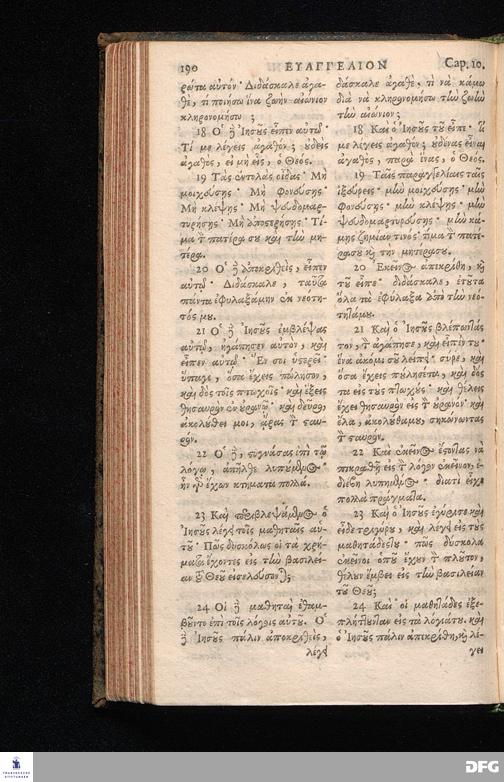 190 ΕΥΑΓΓΕΛΙΟΝ Cap. 10.
ρώτα αὐτόν· Διδάσκαλε ἀγα-
θὲ, τί ποιήσω ἵνα ζωὴν αἰώνιον
κληρονομήσω;
18 Ὁ δὲ Ἰησοῦς εἶπεν αὐτῷ·
Τί με λέγεις ἀγαθόν; οὐδεὶς
ἀγαθὸς, εἰ μὴ εἷς, ὁ Θεός.
19 Τὰς ἐντολὰς οἶδας· Μὴ
μοιχεύσῃς· Μὴ φονεύσῃς·
Μὴ κλέψῃς· Μὴ ψευδομαρ-
τυρήσῃς· Μὴ ἀποστερήσῃς· Τί-
μα τὸν πατέρα σου καὶ τὴν μη-
τέρα.
20 Ὁ δὲ ἀποκριθεὶς, εἶπεν
αὐτῷ· Διδάσκαλε, ταῦτα
πάντα ἐφυλαξάμην ἐκ νεότη-
τός μου.
21 Ὁ δὲ Ἰησοῦς ἐμβλέψας
αὐτῷ, ἠγάπησεν αὐτὸν, καὶ
εἶπεν αὐτῷ· Ἕν σοι ὑστερεῖ·
ὕπαγε, ὅσα ἔχεις πώλησον,
καὶ δὸς τοῖς πτωχοῖς· καὶ ἕξεις
θησαυρὸν ἐν οὐρανῷ· καὶ δεῦρο,
ἀκολούθει μοι, ἄρας τὸν σταυ-
ρόν.
22 Ὁ δὲ, στυγνάσας ἐπὶ τῷ
λόγῳ, ἀπῆλθε λυπούμενος·
ἦν γὰρ ἔχων κτήματα πολλά.
23 Καὶ περιβλεψάμενος ὁ
Ἰησοῦς λέγει τοῖς μαθηταῖς αὐ-
τοῦ· Πῶς δυσκόλως οἱ τὰ χρή-
ματα ἔχοντες εἰς τὴν βασιλεί-
αν τοῦ Θεοῦ εἰσελεύσονται;
24 Οἱ δὲ μαθηταὶ ἐθαμ-
βοῦντο ἐπὶ τοῖς λόγοις αὐτοῦ. Ὁ
δὲ Ἰησοῦς πάλιν ἀποκριθεὶς,
λέγει
δάσκαλε ἀγαθὲ, τί νὰ κάμω
διὰ νὰ κληρονομήσω τὴν ζωὴν
τὴν αἰώνιον;
18 Καὶ ὁ Ἰησοῦς τοῦ εἶπε· τί
με λέγεις ἀγαθόν; οὐδένας εἶναι
ἀγαθὸς, παρὰ ἕνας, ὁ Θεός.
19 Ταῖς παραγγελίαις ταῖς
ἰξεύρεις· μὴν μοιχεύσῃς· μὴν
φονεύσῃς· μὴν κλέψῃς· μὴν
ψευδομαρτυρεύσῃς· μὴν κά-
μῃς ζημίαν τινός· τίμα τὸν πατέ-
ρα σου καὶ τὴν μητέρα σου.
20 Ἐκεῖνος ἀπικρίθη, καὶ
τοῦ εἶπε· διδάσκαλε, ἐτοῦτα
ὅλα τὰ ἐφύλαξα ἀπὸ τὴν νεό-
τητά μου.
21 Καὶ ὁ Ἰησοῦς βλέποντάς
τον, τὸν ἀγάπησε, καὶ εἶπέν του·
ἕνα ἀκόμι σοῦ λείπει· σῦρε, καὶ
ὅσα ἔχεις πούλησέτα, καὶ δός
τα εἰς τοὺς πτωχούς· καὶ θέλεις
ἔχει θησαυρὸν εἰς τὸν οὐρανόν· καὶ
ἔλα, ἀκολούθα μου, σηκώνωντας
τὸν σταυρόν.
22 Καὶ ἐκεῖνος ἔστωντας νὰ
πικραθῇ εἰς τὸν λόγον ἐκεῖνον, ἐ-
διέβη λυπημένος· διατὶ εἶχε
πολλὰ πράγματα.
23 Καὶ ὁ Ἰησοῦς ἐγύρισε καὶ
εἶδε τριγύρου, καὶ λέγει εἰς τοὺς
μαθητάδες του· πῶς δύσκολα
ἐκεῖνοι ὁποῦ ἔχουν τὸν πλοῦτον,
θέλουν ἔμβει εἰς τὴν βασιλείαν
τοῦ Θεοῦ;
24 Καὶ οἱ μαθητάδες ἐξε-
πλήττουνταν εἰς τὰ λόγιά του. καὶ
ὁ Ἰησοῦς πάλιν ἀπικρίθη, καὶ λέ-
γει
DFG